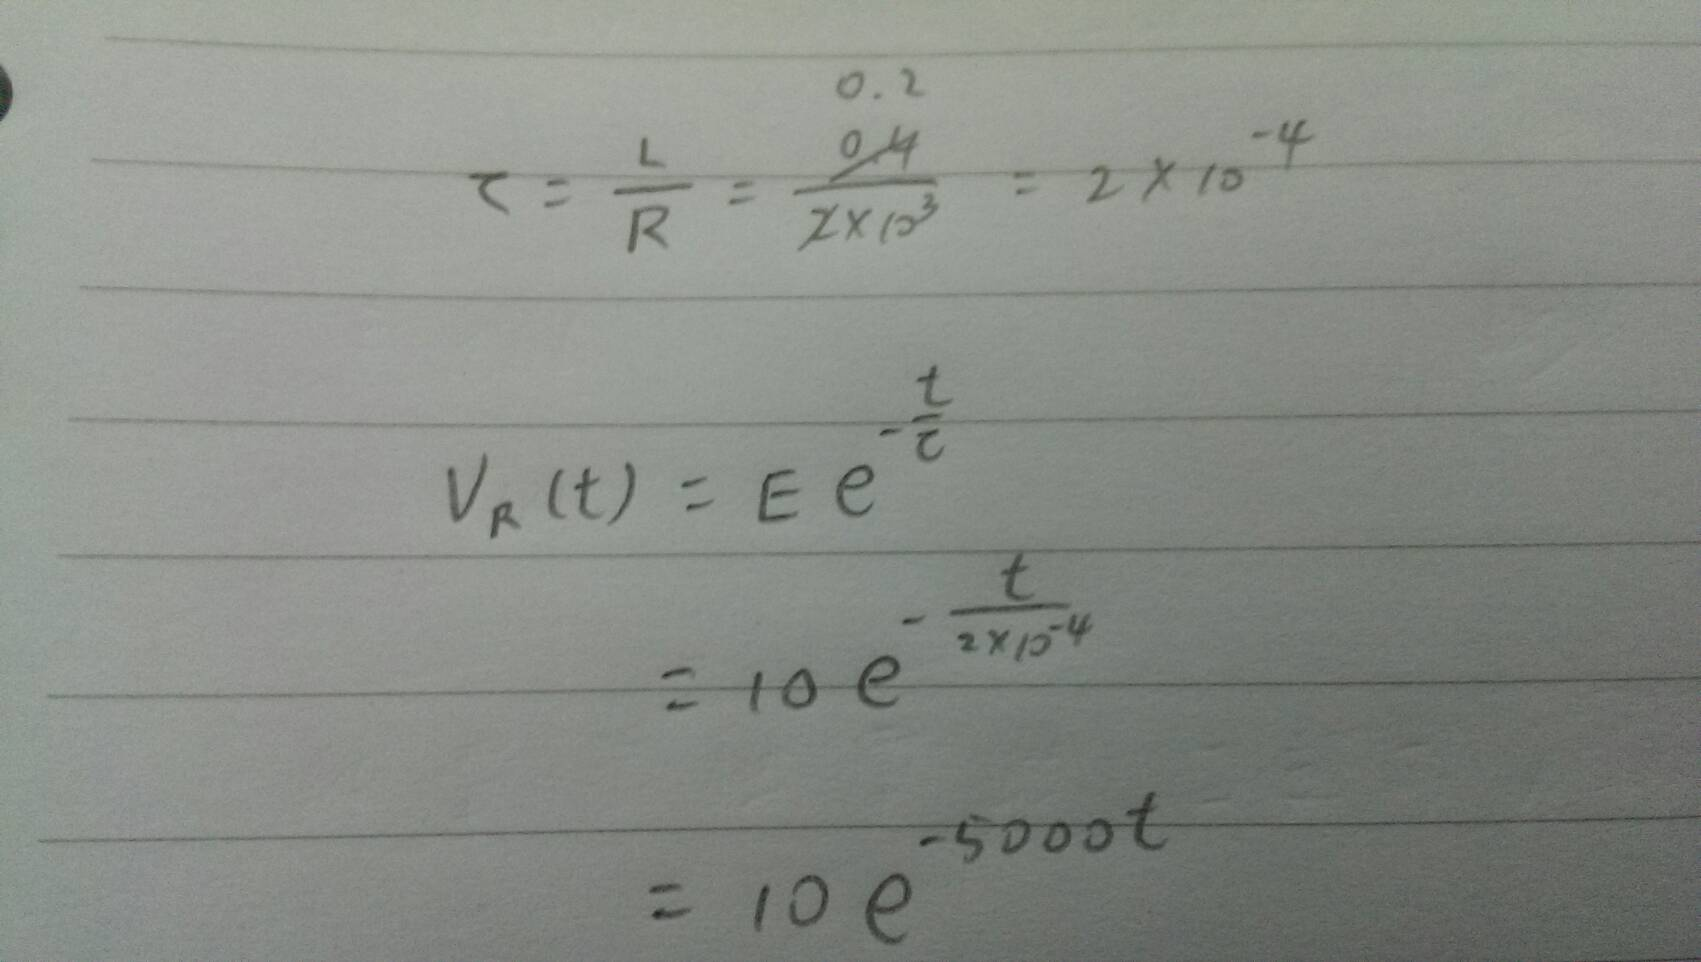 0.2
τ = L/R = 0.4/2×10³ = 2 × 10⁻⁴
V_R(t) = E e^(-t/τ)
= 10 e^(-t/2×10⁻⁴)
= 10 e^(-5000t)